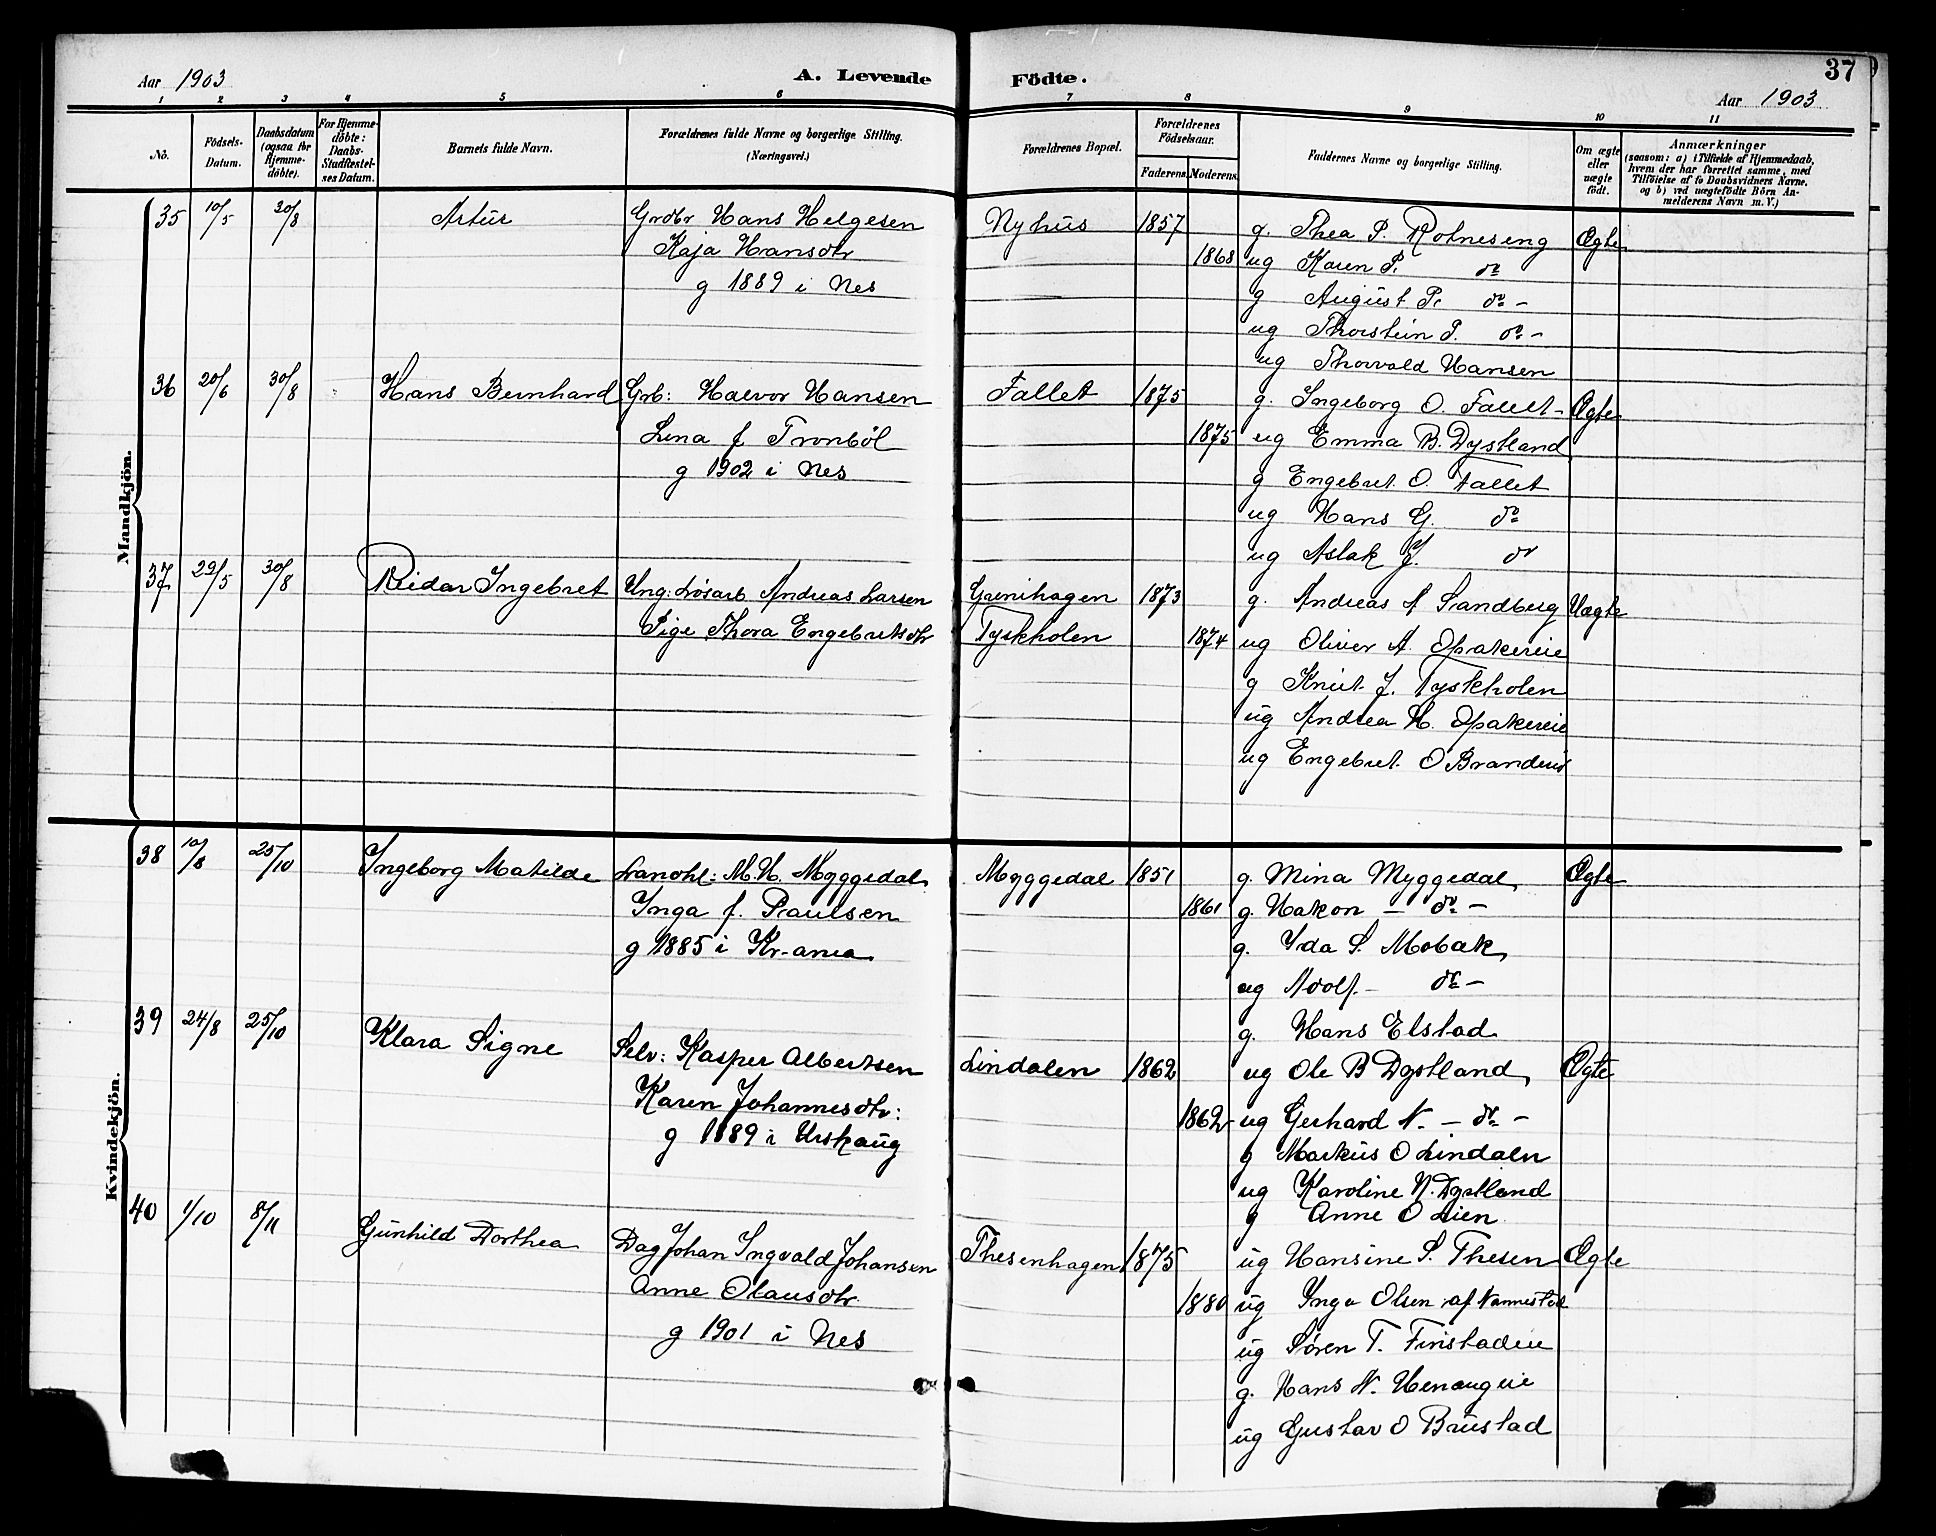 Aar 1903
A. Levende Födte.
37
Aar 1903
1 2 3 4 5 6 7 8 9 10 11
No.
Födsels-
Datum.
Daabsdatum
(ogsaa for
Hjemme-
döbte).
For Hjemme-
döbte:
Daabs-
Stadfæstel-
ses Datum.
Barnets fulde Navn.
Forældrenes fulde Navne og borgerlige Stilling.
(Næringsvei.)
Forældrenes Bopæl.
Forældrenes
Födselsaar.
Faderens. Moderens.
Faddernes Navne og borgerlige Stilling.
Om ægte
eller
uægte
födt.
Anmærkninger
(saasom: a) i Tilfælde af Hjemmedaab,
hvem der har forrettet samme, med
Tilföielse af to Daabsvidners Navne,
og b) ved uægtefödte Börn An-
melderens Navn m. V.)
Mandkjön.
35 10/5 30/8 Artür Grdbr Hans Helgesen Nyhus 1857 g. Thea P. Rotneseng Ægte
Kaja Hansdtr 1868 ug Karen P. do
g 1889 i Nes g August P. do -
ug Thorstein P. do -
ug Thorvald Hansen
36 20/6 30/8 Hans Bernhard Grb: Halvor Hansen Fallet 1875 g. Ingeborg O. Fallet Ægte
Lina f Tronböl 1875 ug Emma B. Dystland
g 1902 i Nes g Engebret O. Fallet
ug Hans G. do
ug Aslak J. do
37 29/5 30/8 Reidar Ingebret Ung: Løsarb Andreas Larsen Grinihagen 1873 g. Andreas A Sandberg Uægte
Pige Thora Engebretsdtr Tyskholen 1874 ug Oliver A. Opakereie
g Knut J. Tyskholen
ug Andrea H. Opakereie
ug Engebret O Brandsrud
Kvindekjön.
38 10/8 25/10 Ingeborg Matilde Landhl: M. H. Myggedal Myggedal 1851 g. Mina Myggedal Ægte
Inga f. Paulsen 1861 g. Hakon - do -
g 1885 i Kr-ania g. Ida S. Mobæk
ug Adolf - do -
g. Hans Elstad
39 24/8 25/10 Klara Signe Selv: Kasper Albertsen Lindalen 1862 ug Ole B Dystland Ægte
Karen Johannesdtr: 1862 ug Gerhard N. - do -
g 1889 i Urskaug g Markus O Lindaln
ug Karoline N. Dystland
g Anne O Lien
40 1/10 8/11 Gunhild Dorthea Dag Johan Ingvald Johansen Thesenhagen 1875 ug Hansine S. Thesen Ægte
Anne Olausdtr 1880 ug Inga Olsen af Nannestad
g 1901 i Nes ug Søren T. Finstadeie
g. Hans N. Henaugeie
ug Gustav O Brustad